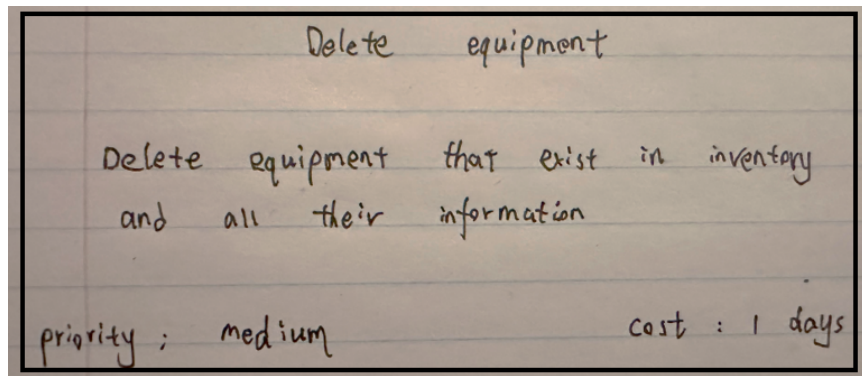 Delete equipment
Delete equipment that exist in inventory
and all their information
priority ; medium cost : 1 days